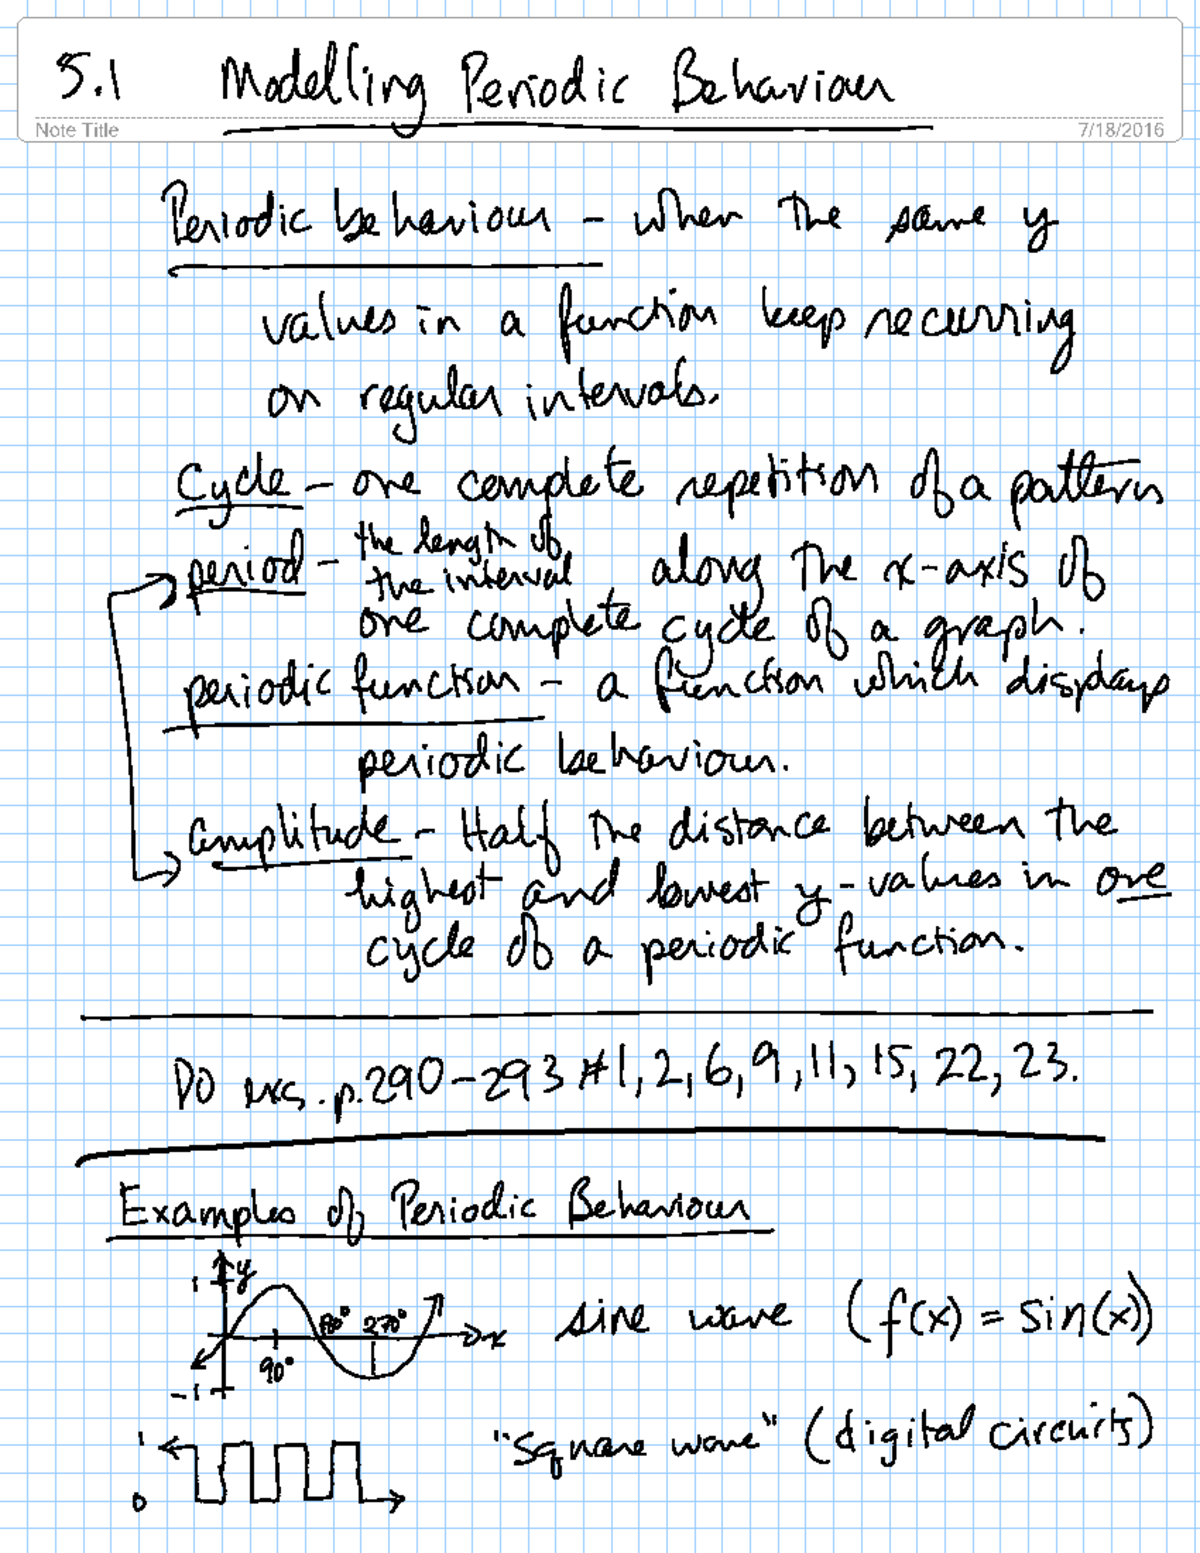 5.1 Modelling Periodic Behaviour
Note Title 7/18/2016
Periodic behaviour – when the same y
values in a function keep recurring
on regular intervals.
Cycle – one complete repetition of a pattern
period – the length of
the interval along the x-axis of
one complete cycle of a graph.
periodic function – a function which displays
periodic behaviour.
amplitude – Half the distance between the
highest and lowest y-values in one
cycle of a periodic function.
DO exs. p. 290–293 #1, 2, 6, 9, 11, 15, 22, 23.
Examples of Periodic Behaviour
1 y
180° 270° x sine wave (f(x) = sin(x))
90°
-1
1 "square wave" (digital circuits)
0